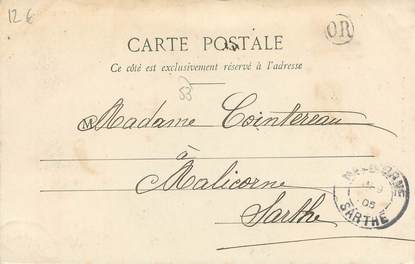 12 €
OR
CARTE POSTALE
Ce côté est exclusivement réservé à l'adresse
53
Madame Cointereau
à
Malicorne
Sarthe
05
SARTHE